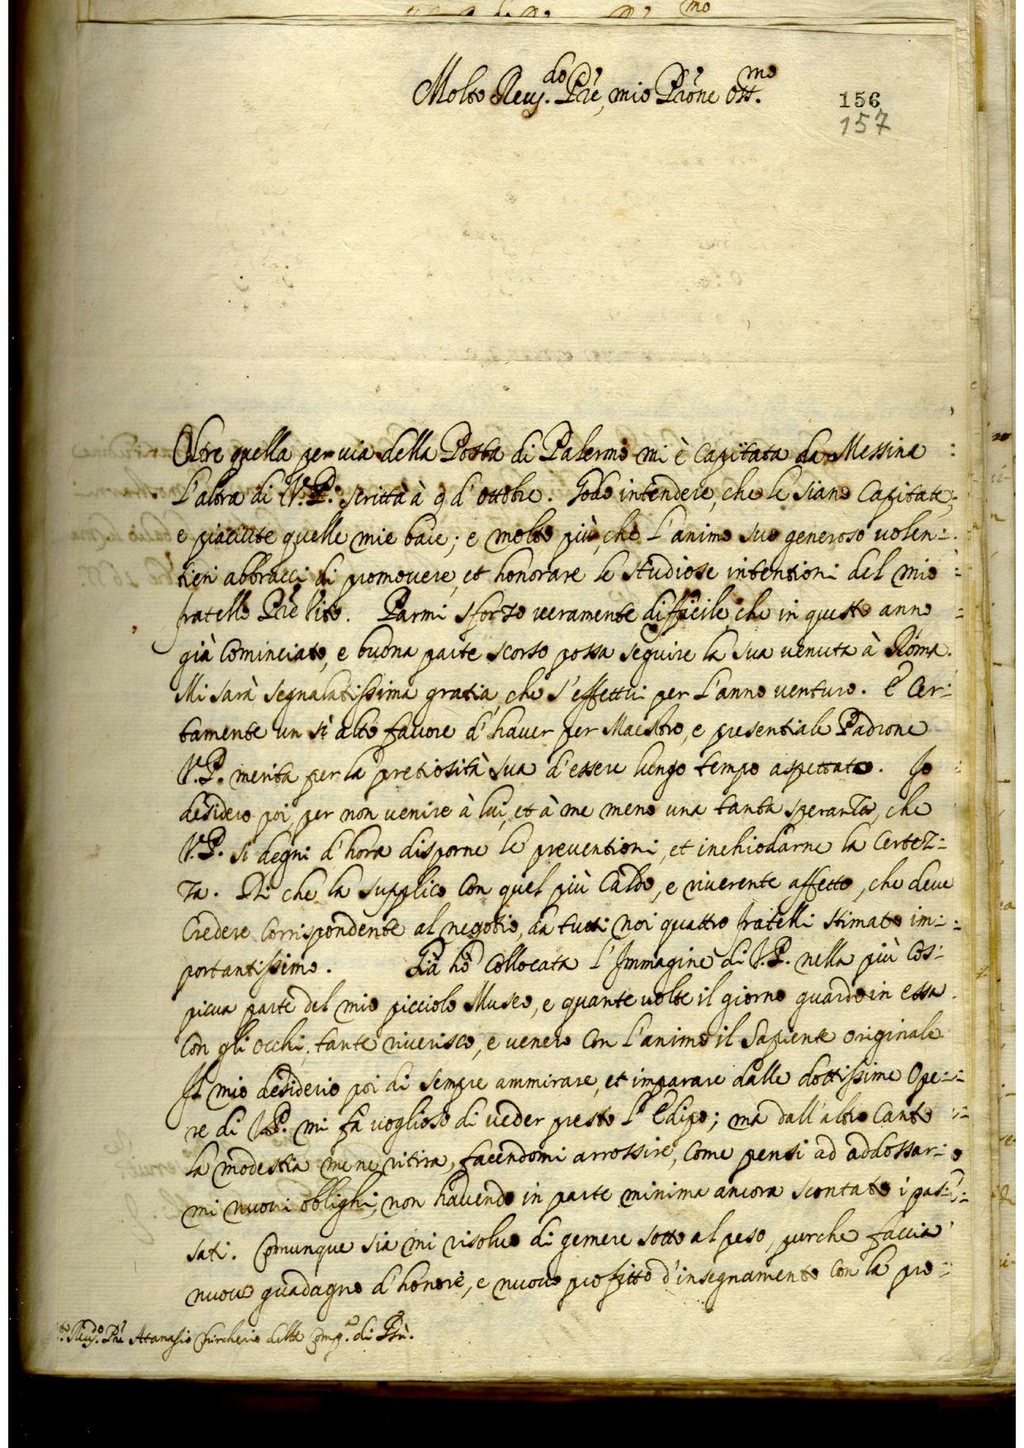 Molto Reu.do P̃re, mio P̃rone Oss.mo
156
157
Oltre quella per via della Posta di Palermo mi è capitata da Messina
l'altra di V.P. scritta à 9 d'ottobre. Godo intendere, che le siano capitate,
e piaciute quelle mie baie; e molto più, che l'animo suo generoso uolen-
tieri abbracci di promouere, et honorare le studiose intentioni del mio
fratello P̃re Vito. Parmi sforzo ueramente difficile, che in questo anno
già cominciato, e buona parte scorso possa seguire la sua uenuta à Roma.
Mi sarà segnalatissima gratia, che s'effettui per l'anno venturo. E cer-
tamente un sì alto fauore d'hauer per Maestro, e presentiale Padrone
V.P. merita per la pretiosità sua d'essere lungo tempo aspettato. Io
desidero poi, per non venire à lui, et à me meno una tanta speranza, che
V.P. si degni d'hora disporne le preuentioni, et inchiodarne la certez-
za. Di che la supplico con quel più caldo, e riuerente affetto, che deue
credere corrispondente al negotio, da tutti noi quattro fratelli stimato im-
portantissimo. Già hò collocata l'Immagine di V.P. nella più cos-
picua parte del mio picciolo Museo, e quante uolte il giorno guardo in essa
con gli occhi, tante riuerisco, e venero con l'animo il Sapiente originale
Il mio desiderio poi di sempre ammirare, et imparare dalle dottissime Ope-
re di V.P. mi fà voglioso di ueder presto l'Edipo; ma dall'altro canto
la modestia me ne ritira, facendomi arrossire, come pensi ad addossar-
mi nuoui oblighi, non hauendo in parte minima ancora scontato i pas-
sati. Comunque sia mi risoluo di gemere sotto al peso, purche faccia
nuouo guadagno d'honore, e nuouo profitto d'insegnamento con la pre-
Reu.do P̃re Atanasio Chircherio della Comp.a di Giesù.